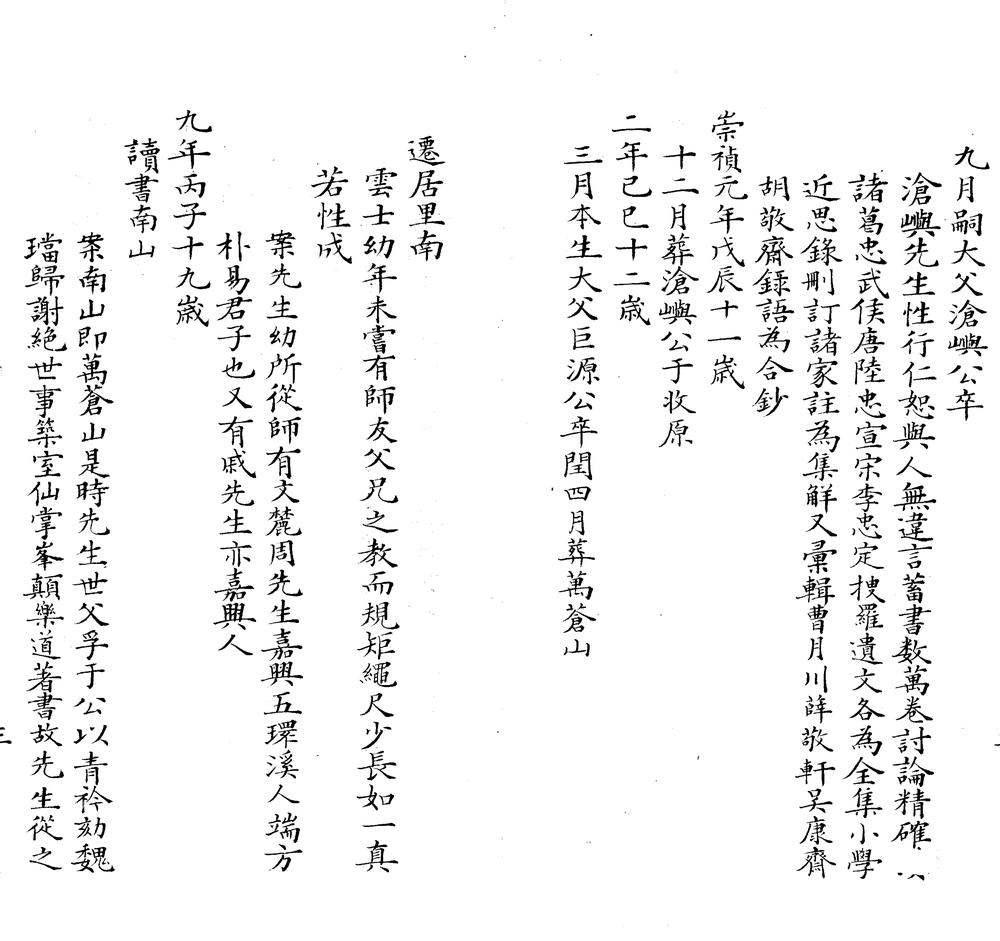 九月嗣大父滄嶼公卒
滄嶼先生性行仁恕與人無違言蓄書数萬卷討論精確
諸葛忠武侯唐陸忠宣宋李忠定搜羅遺文各為全集小學
近思錄刪訂諸家註為集觧又彚輯曹月川薛敬軒吴康齋
胡敬齋錄語為合鈔
崇禎元年戊辰十一歲
十二月葬滄嶼公于牧原
二年己巳十二歲
三月本生大父巨源公卒閏四月葬萬蒼山
遷居里南
雲士幼年未嘗有師友父兄之教而規矩繩尺少長如一真
若性成
案先生幼所從師有文麓周先生嘉興五環溪人端方
朴易君子也又有戚先生亦嘉興人
九年丙子十九歲
讀書南山
案南山即萬蒼山是時先生世父孚于公以青衿劾魏
璫歸謝絕世事築室仙掌峯顛樂道著書故先生從之
三